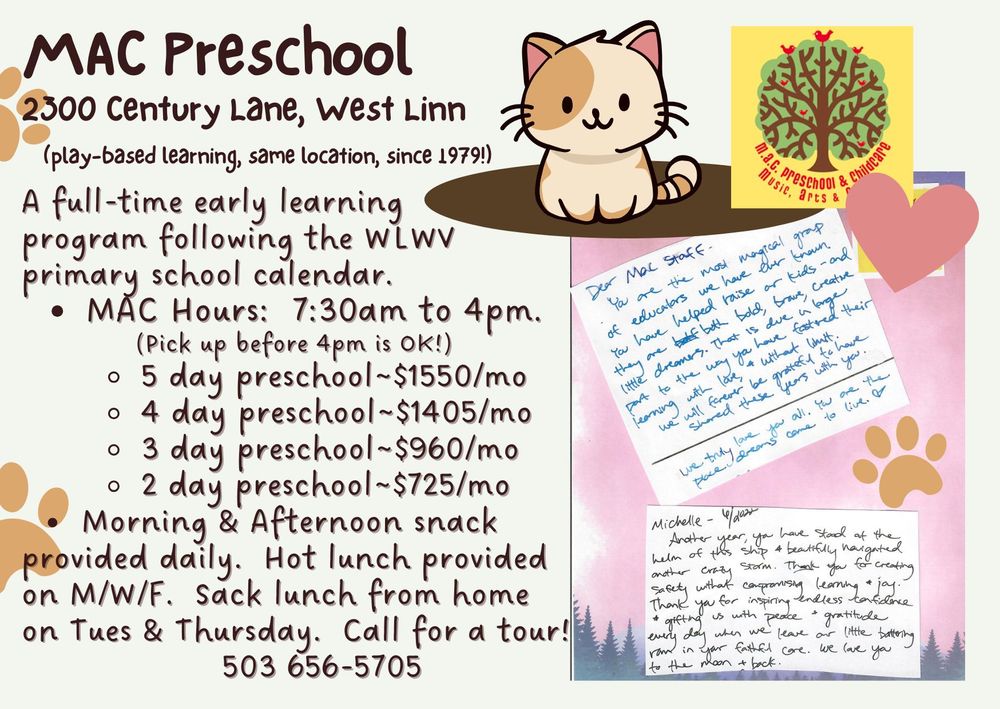 MAC Preschool
2300 Century Lane, West Linn
(play-based learning, same location, since 1979!)
A full-time early learning
program following the WLWV
primary school calendar.
• MAC Hours: 7:30am to 4pm.
(Pick up before 4pm is OK!)
○ 5 day preschool~$1550/mo
○ 4 day preschool~$1405/mo
○ 3 day preschool~$960/mo
○ 2 day preschool~$725/mo
• Morning & Afternoon snack
provided daily. Hot lunch provided
on M/W/F. Sack lunch from home
on Tues & Thursday. Call for a tour!
503 656-5705
M.A.C. Preschool & Childcare
Music, Arts &
Dear Mac Staff-
You are the most magical group
of educators we have ever known
You have helped raise our kids and
they are both bold, brave, creative
little dreamers. That is due in large
part to the way you have fostered their
learning with love, & without limit.
we will forever be grateful to have
shared these years with you.
We truly love you all. You are the
place dreams come to live. ♡
Michelle -
Another year, you have stood at the
helm of this ship & beautifully navigated
another crazy storm. Thank you for creating
safety without compromising learning & joy.
Thank you for inspiring endless confidence
& gifting us with peace & gratitude
every day when we leave our little battering
ram in your faithful care. We love you
to the moon & back.